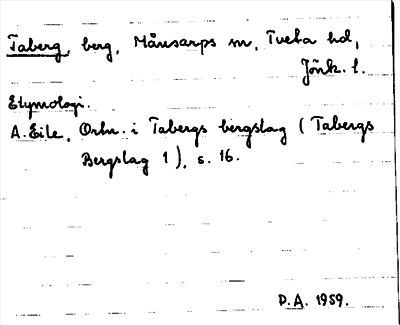 Taberg, berg, Månsarps sn, Tveta hd,
Jönk. l.
Etymologi.
A. Eile, Ortn. i Tabergs bergslag (Tabergs
Bergslag 1), s. 16.
D.A. 1959.